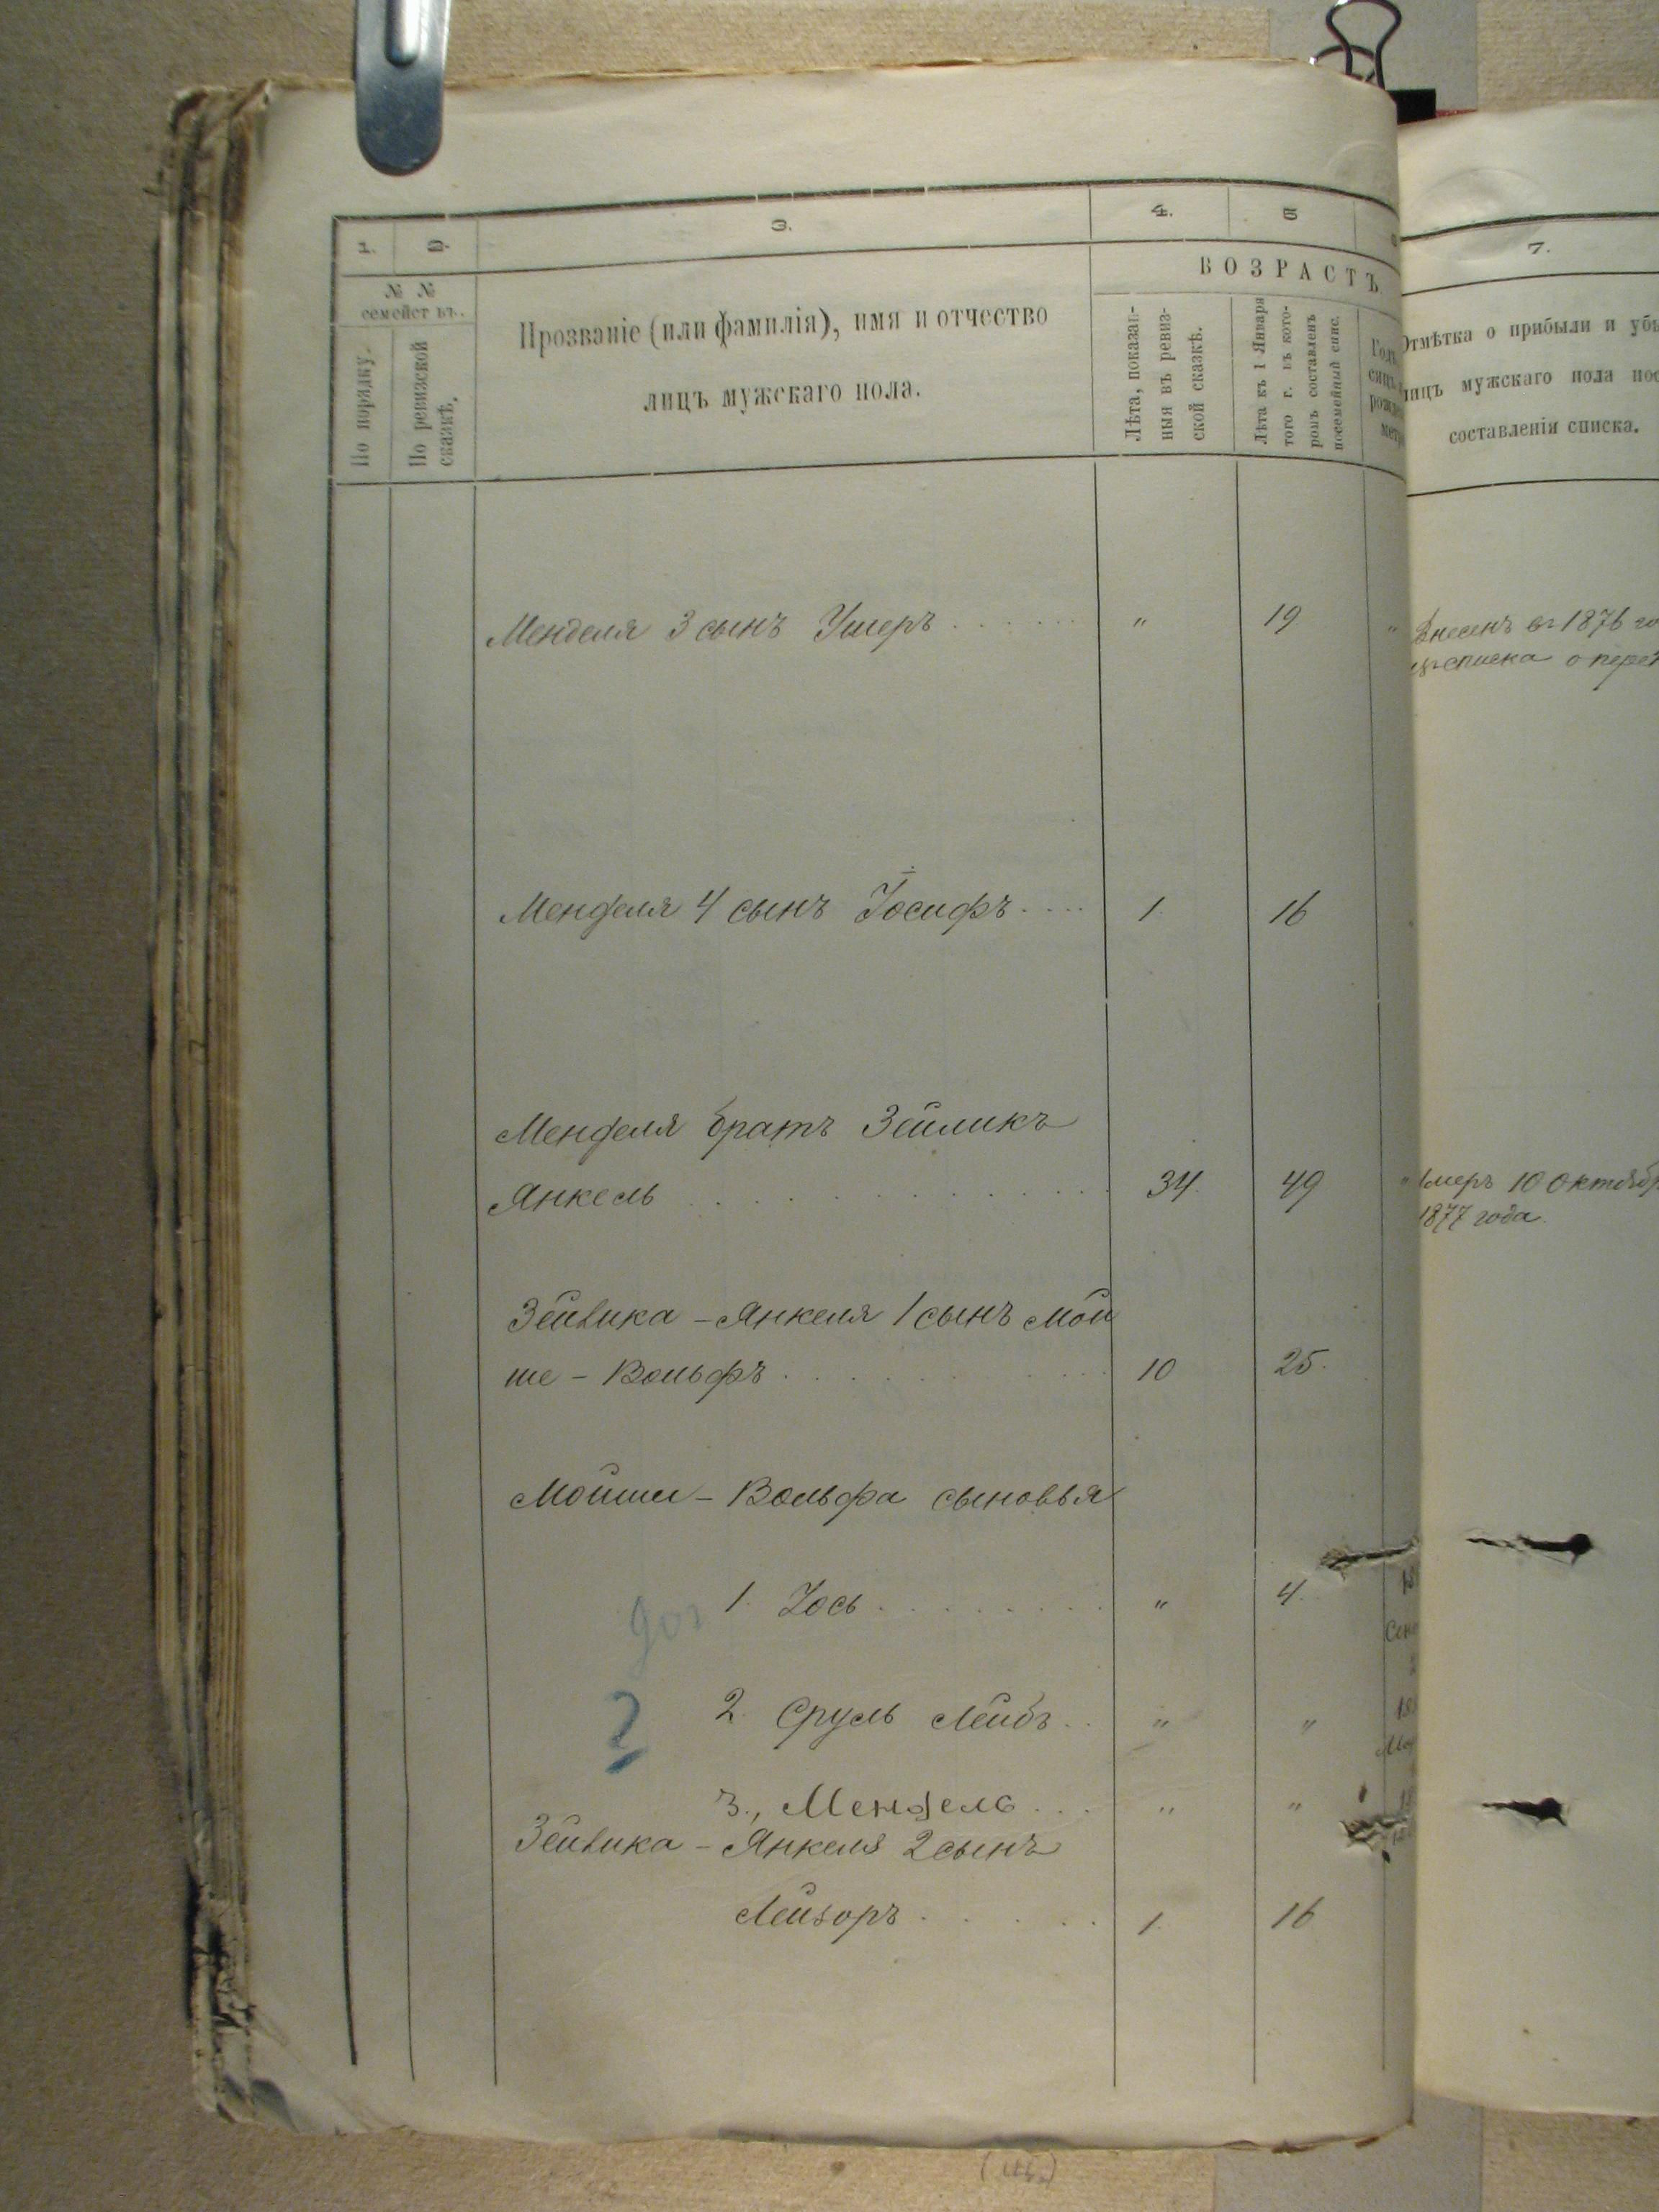 1. 2. 3. 4. 5 7.
№ № семействъ.
По порядку.
По ревизской сказкѣ.
Прозваніе (или фамилія), имя и отчество
лицъ мужскаго пола.
ВОЗРАСТЪ.
Лѣта, показан-
ныя въ ревиз-
ской сказкѣ.
Лѣта къ 1 Января
того г. въ кото-
ромъ составленъ
посемейный спис.
Отмѣтка о прибыли и убы
лицъ мужскаго пола пос
составленія списка.
Менделя 3 сынъ Ушеръ . . . . . . . " 19 " Внесенъ въ 1876 го
изъ списка о пере
Менделя 4 сынъ Іосифъ . . . . 1 16
Менделя братъ Зейликъ
Янкель . . . . . . . . . . . . . . 34. 49 Умеръ 10 Октябр
1877 года.
Зейвика - Янкеля 1 сынъ Мой
ше - Вольфъ . . . . . . . . . . 10 25.
Мойши - Вольфа сыновья
1. Іось . . . . . . . . . " 4.
2. Сруль Лейбъ . . " "
?
3., Мендель . . . " "
Зейвика - Янкеля 2 сынъ
Лейзоръ . . . . . . 1. 16